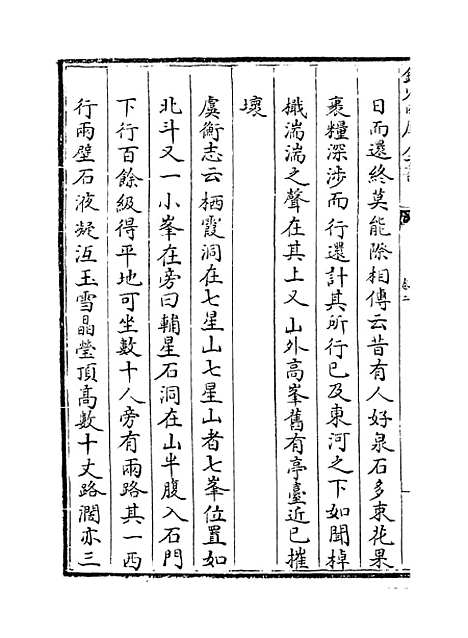 日而還終莫能際相傳云昔有人好泉石多束花果
裹糧深涉而行還計其所行已及東河之下如聞棹
檝湍湍之聲在其上又山外高峯舊有亭臺近已摧
壞
虞衡志云栖霞洞在七星山七星山者七峯位置如
北斗又一小峯在旁曰輔星石洞在山半腹入石門
下行百餘級得平地可坐數十人旁有兩路其一西
行兩壁石液凝沍玉雪晶瑩頂高數十丈路濶亦三
卷二